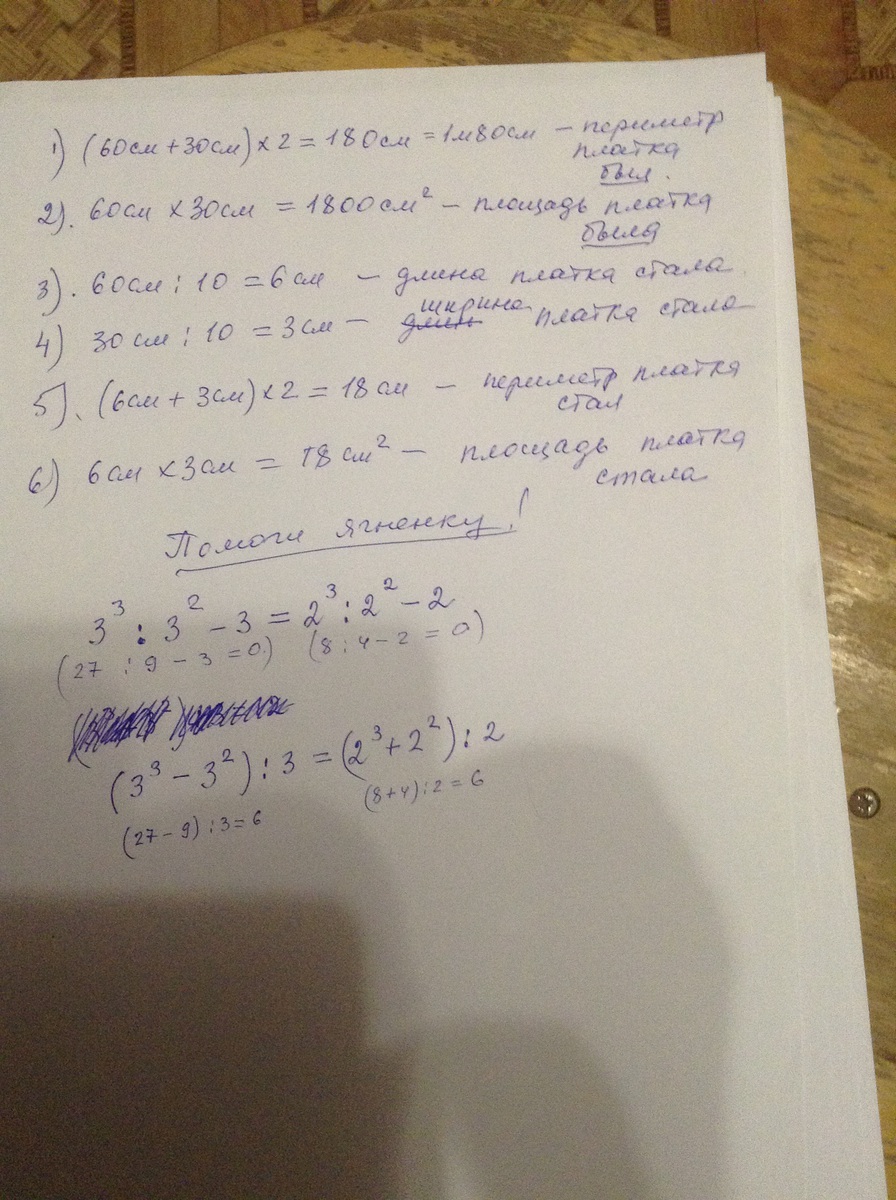 1) (60см + 30см) × 2 = 180см = 1м80см – периметр
платка
был.
2). 60см × 30см = 1800см² – площадь платка
была
3). 60см : 10 = 6см – длина платка стала.
4) 30см : 10 = 3см – ширина платка стала
5). (6см + 3см) × 2 = 18см – периметр платка
стал
6) 6см × 3см = 18см² – площадь платка
стала
Помоги ягненку!
3³ : 3² – 3 = 2³ : 2² – 2
(27 : 9 – 3 = 0) (8 : 4 – 2 = 0)
(3³ – 3²) : 3 = (2³ + 2²) : 2
(27 – 9) : 3 = 6 (8 + 4) : 2 = 6